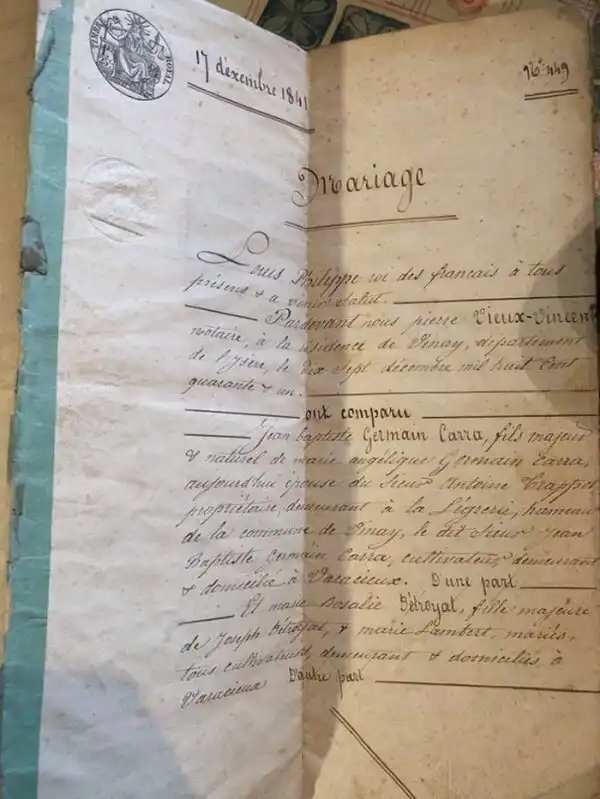 TIMBRE ROYAL
17 décembre 1841
No. 449
Mariage
Louis Philippe roi des français à tous
présens & a venir salut.
Pardevant nous pierre Vieux-Vincent
notaire, à la résidence de Vinay, département
de l'ysère, le dix sept décembre mil huit cent
quarante & un.
ont comparu
Jean baptiste Germain Carra, fils majeur
& naturel de marie angélique Germain Carra,
aujourd'hui épouse du sieur Antoine Trappet
propriétaire, demeurant à la Légrerie, hameau
de la commune de Vinay, le dit sieur Jean
Baptiste Germain Carra, cultivateur demeurant
& domicilié à Varacieux. D'une part
Et marie Rosalie Détroyat, fille majeure
de Joseph Détroyat, & marie Lambert, mariés,
tous cultivateurs, demeurant & domiciliés à
Varacieux D'autre part